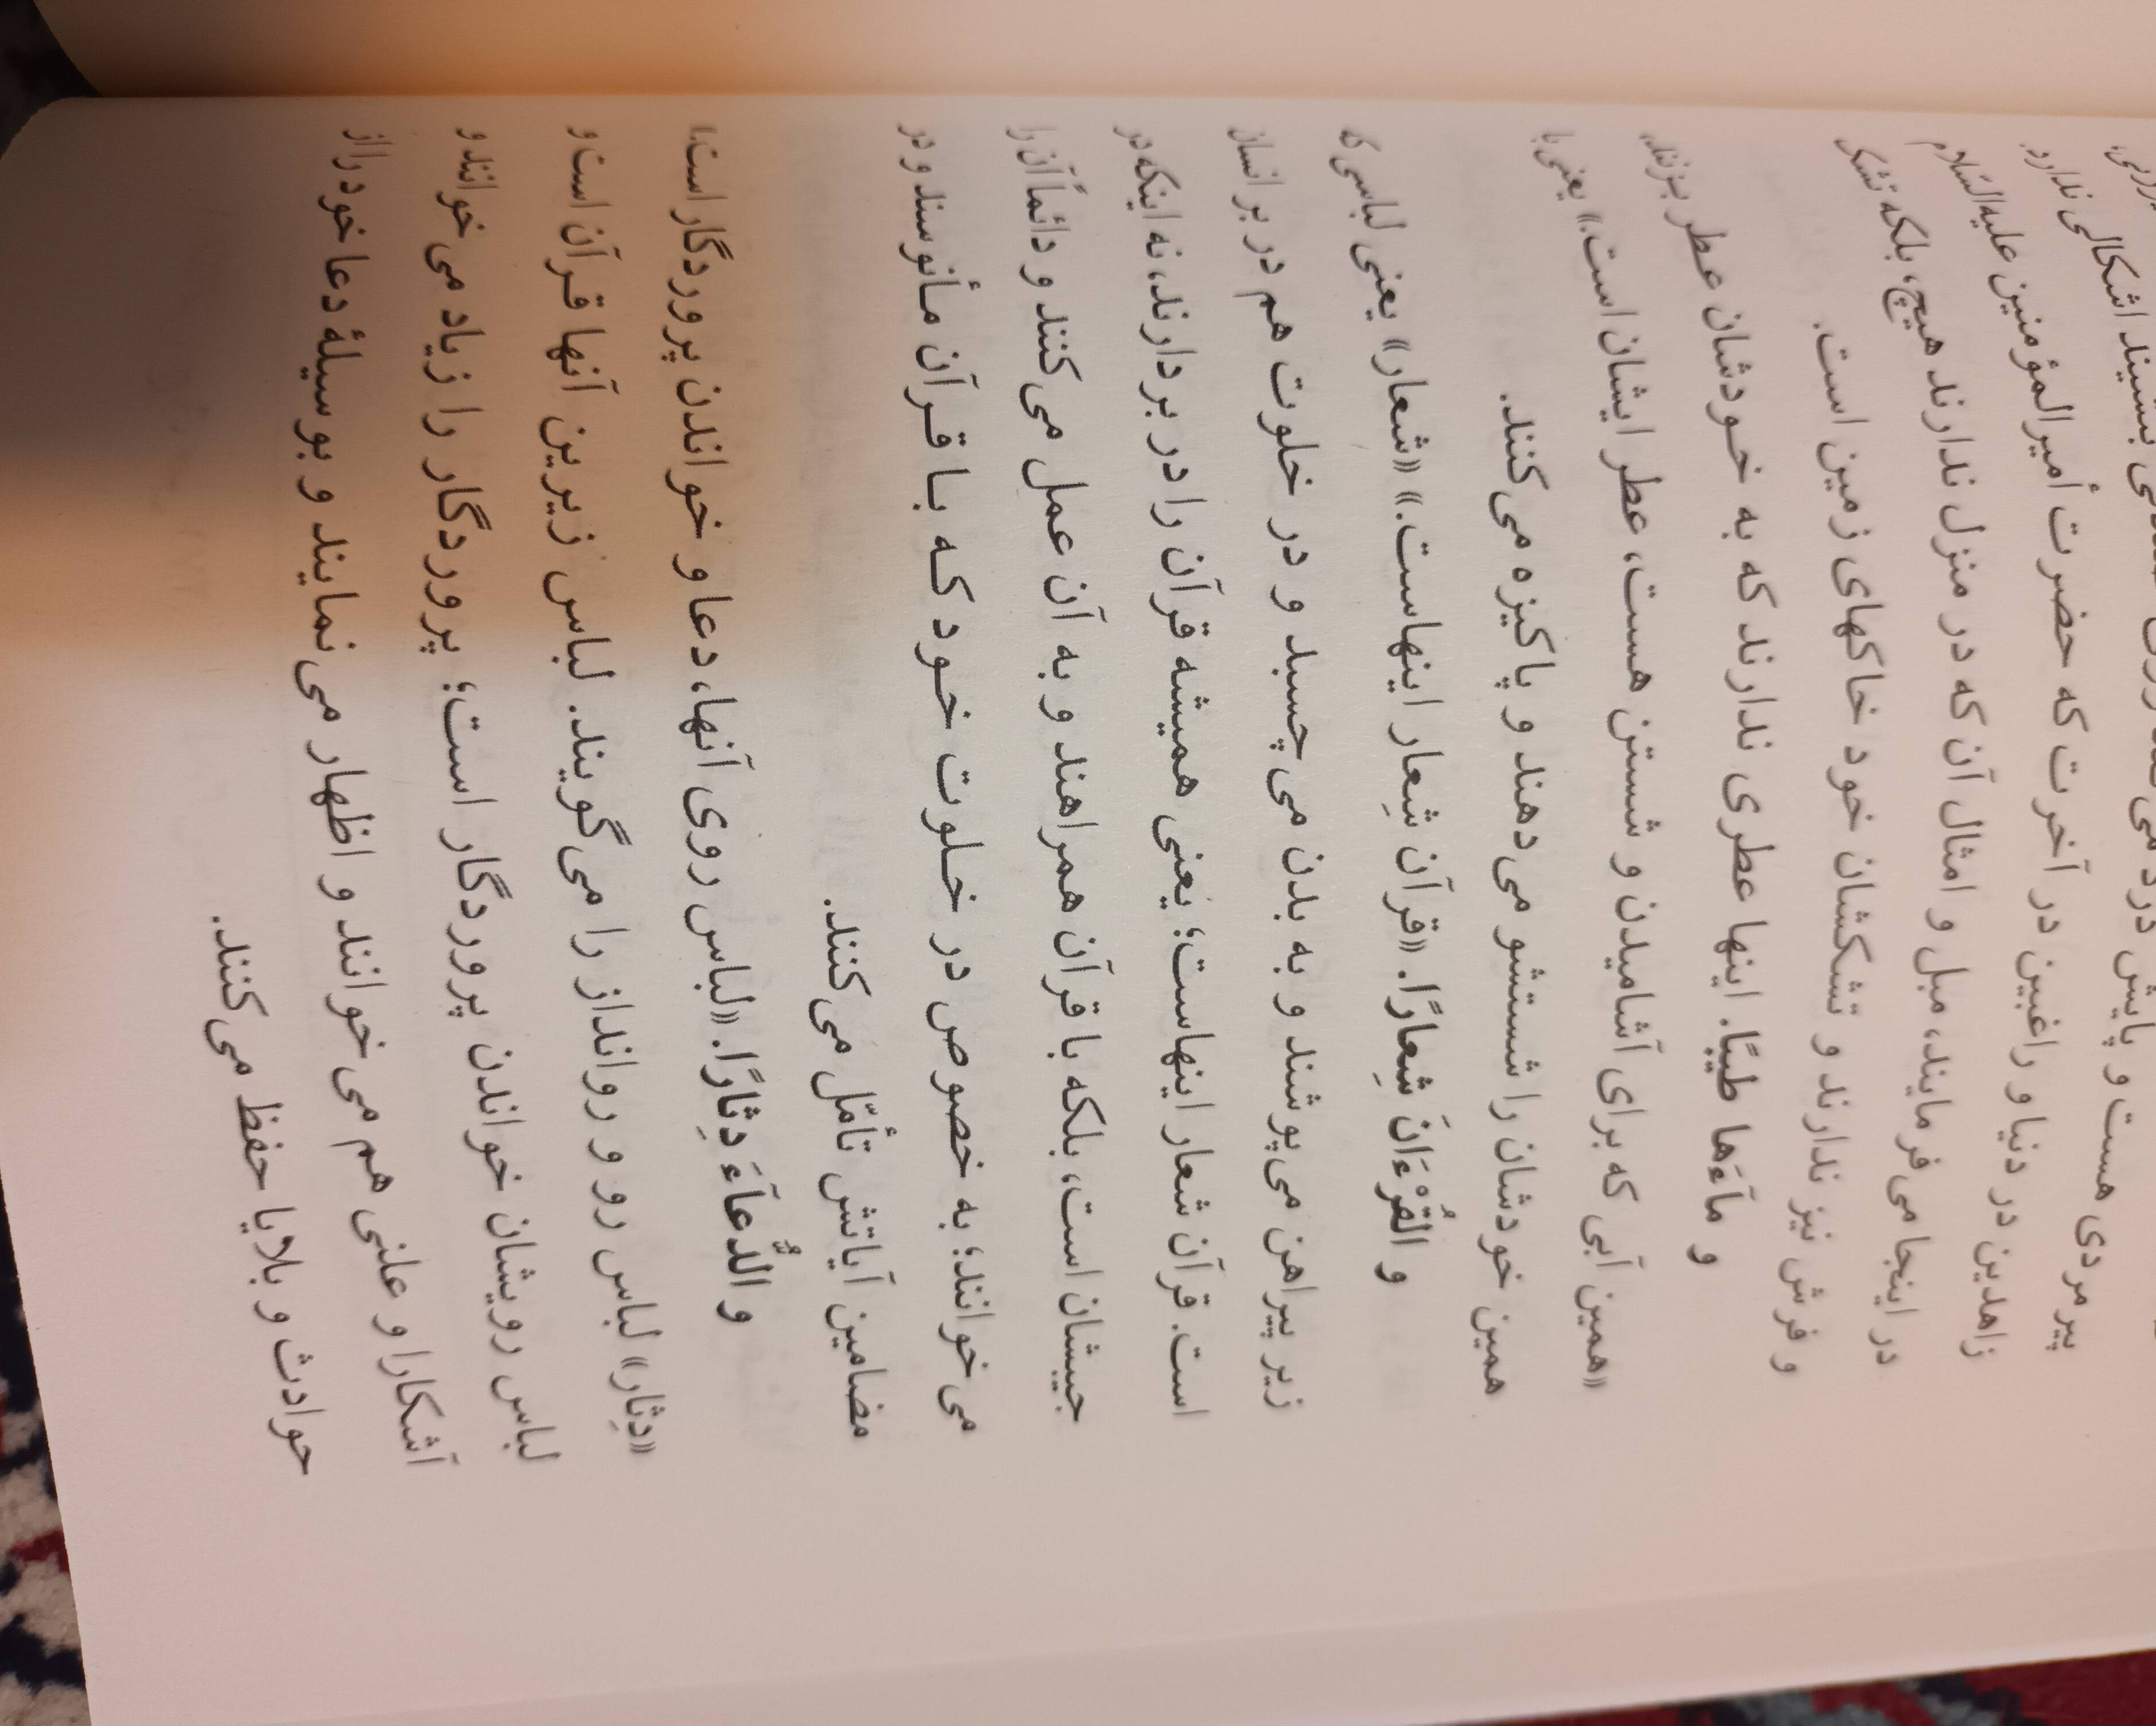 پیرمردی هست و پایش درد می‌کند روی صندلی بنشیند اشکالی ندارد.
زاهدین در دنیا و راغبین در آخرت که حضرت أمیرالمؤمنین علیه‌السّلام
در اینجا می‌فرمایند، مبل و امثال آن که در منزل ندارند هیچ، بلکه تشک
و فرش نیز ندارند و تشکشان خود خاکهای زمین است.
و مآءَها طیبًا. اینها عطری ندارند که به خودشان عطر بزنند،
«همین آبی که برای آشامیدن و شستن هست، عطر ایشان است.» یعنی با
همین خودشان را شستشو می‌دهند و پاکیزه می‌کنند.
و القُرْءَانَ شِعارًا. «قرآن شِعار اینهاست.» «شعار» یعنی لباسی که
زیر پیراهن می‌پوشند و به بدن می‌چسبد و در خلوت هم در بر انسان
است. قرآن شعار اینهاست؛ یعنی همیشه قرآن را در بر دارند، نه اینکه در
جیبشان است، بلکه با قرآن همراهند و به آن عمل می‌کنند و دائماً آن را
می‌خوانند؛ به خصوص در خلوت خود که با قرآن مأنوسند و در
مضامین آیاتش تأمّل می‌کنند.
و الدُّعآءَ دِثارًا. «لباس روی آنها، دعا و خواندن پروردگار است.»
«دِثار» لباس رو و روانداز را می‌گویند. لباس زیرین آنها قرآن است و
لباس رویشان خواندن پروردگار است؛ پروردگار را زیاد می‌خوانند و
آشکارا و علنی هم می‌خوانند و اظهار می‌نمایند و بوسیلۀ دعا خود را از
حوادث و بلایا حفظ می‌کنند.